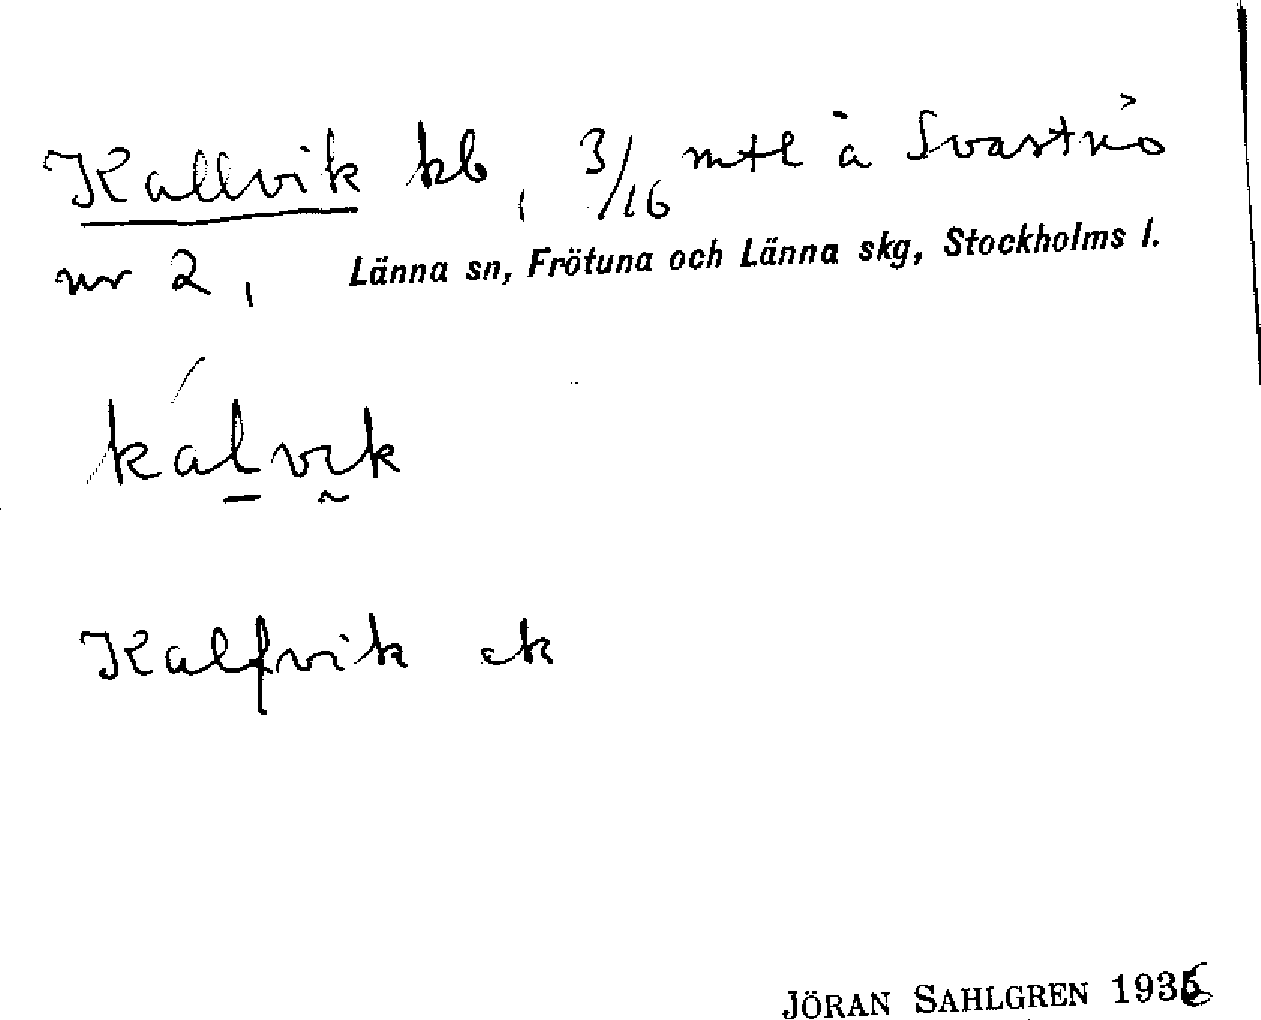 Kallvik kb, 3/16 mtl å Svartnö
nr 2, Länna sn, Frötuna och Länna skg, Stockholms l.
kálvik
Kalfvik ek
JÖRAN SAHLGREN 1936